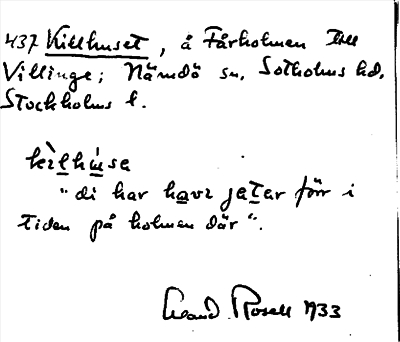 437 Killhuset, å Fårholmen till
Villinge; Nämdö sn, Sotholms hd,
Stockholms l.
kìlhúsa
"di har havi jetar förr i
tiden på holmen där".
Rosell 1933